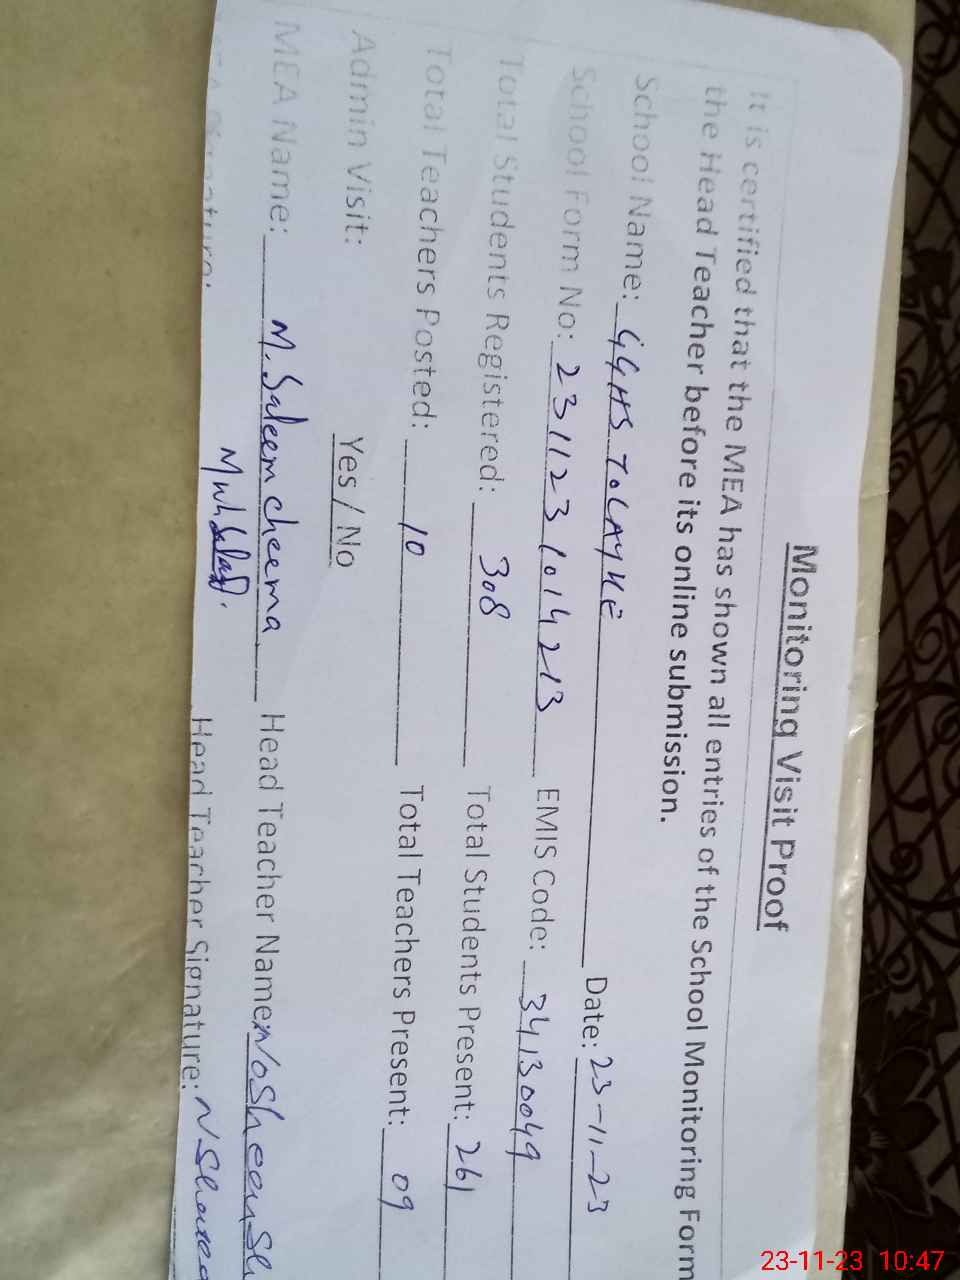 Monitoring Visit Proof
It is certified that the MEA has shown all entries of the School Monitoring Form
the Head Teacher before its online submission.
School Name: GGHS TOLAYKE Date: 23-11-23
School Form No: 231123 1014213 EMIS Code: 34130049
Total Students Registered: 308 Total Students Present: 261
Total Teachers Posted: 10 Total Teachers Present: 09
Admin Visit: Yes / No
MEA Name: M. Saleem cheema Head Teacher Name: Nosheen
Head Teacher Signature:
23-11-23 10:47